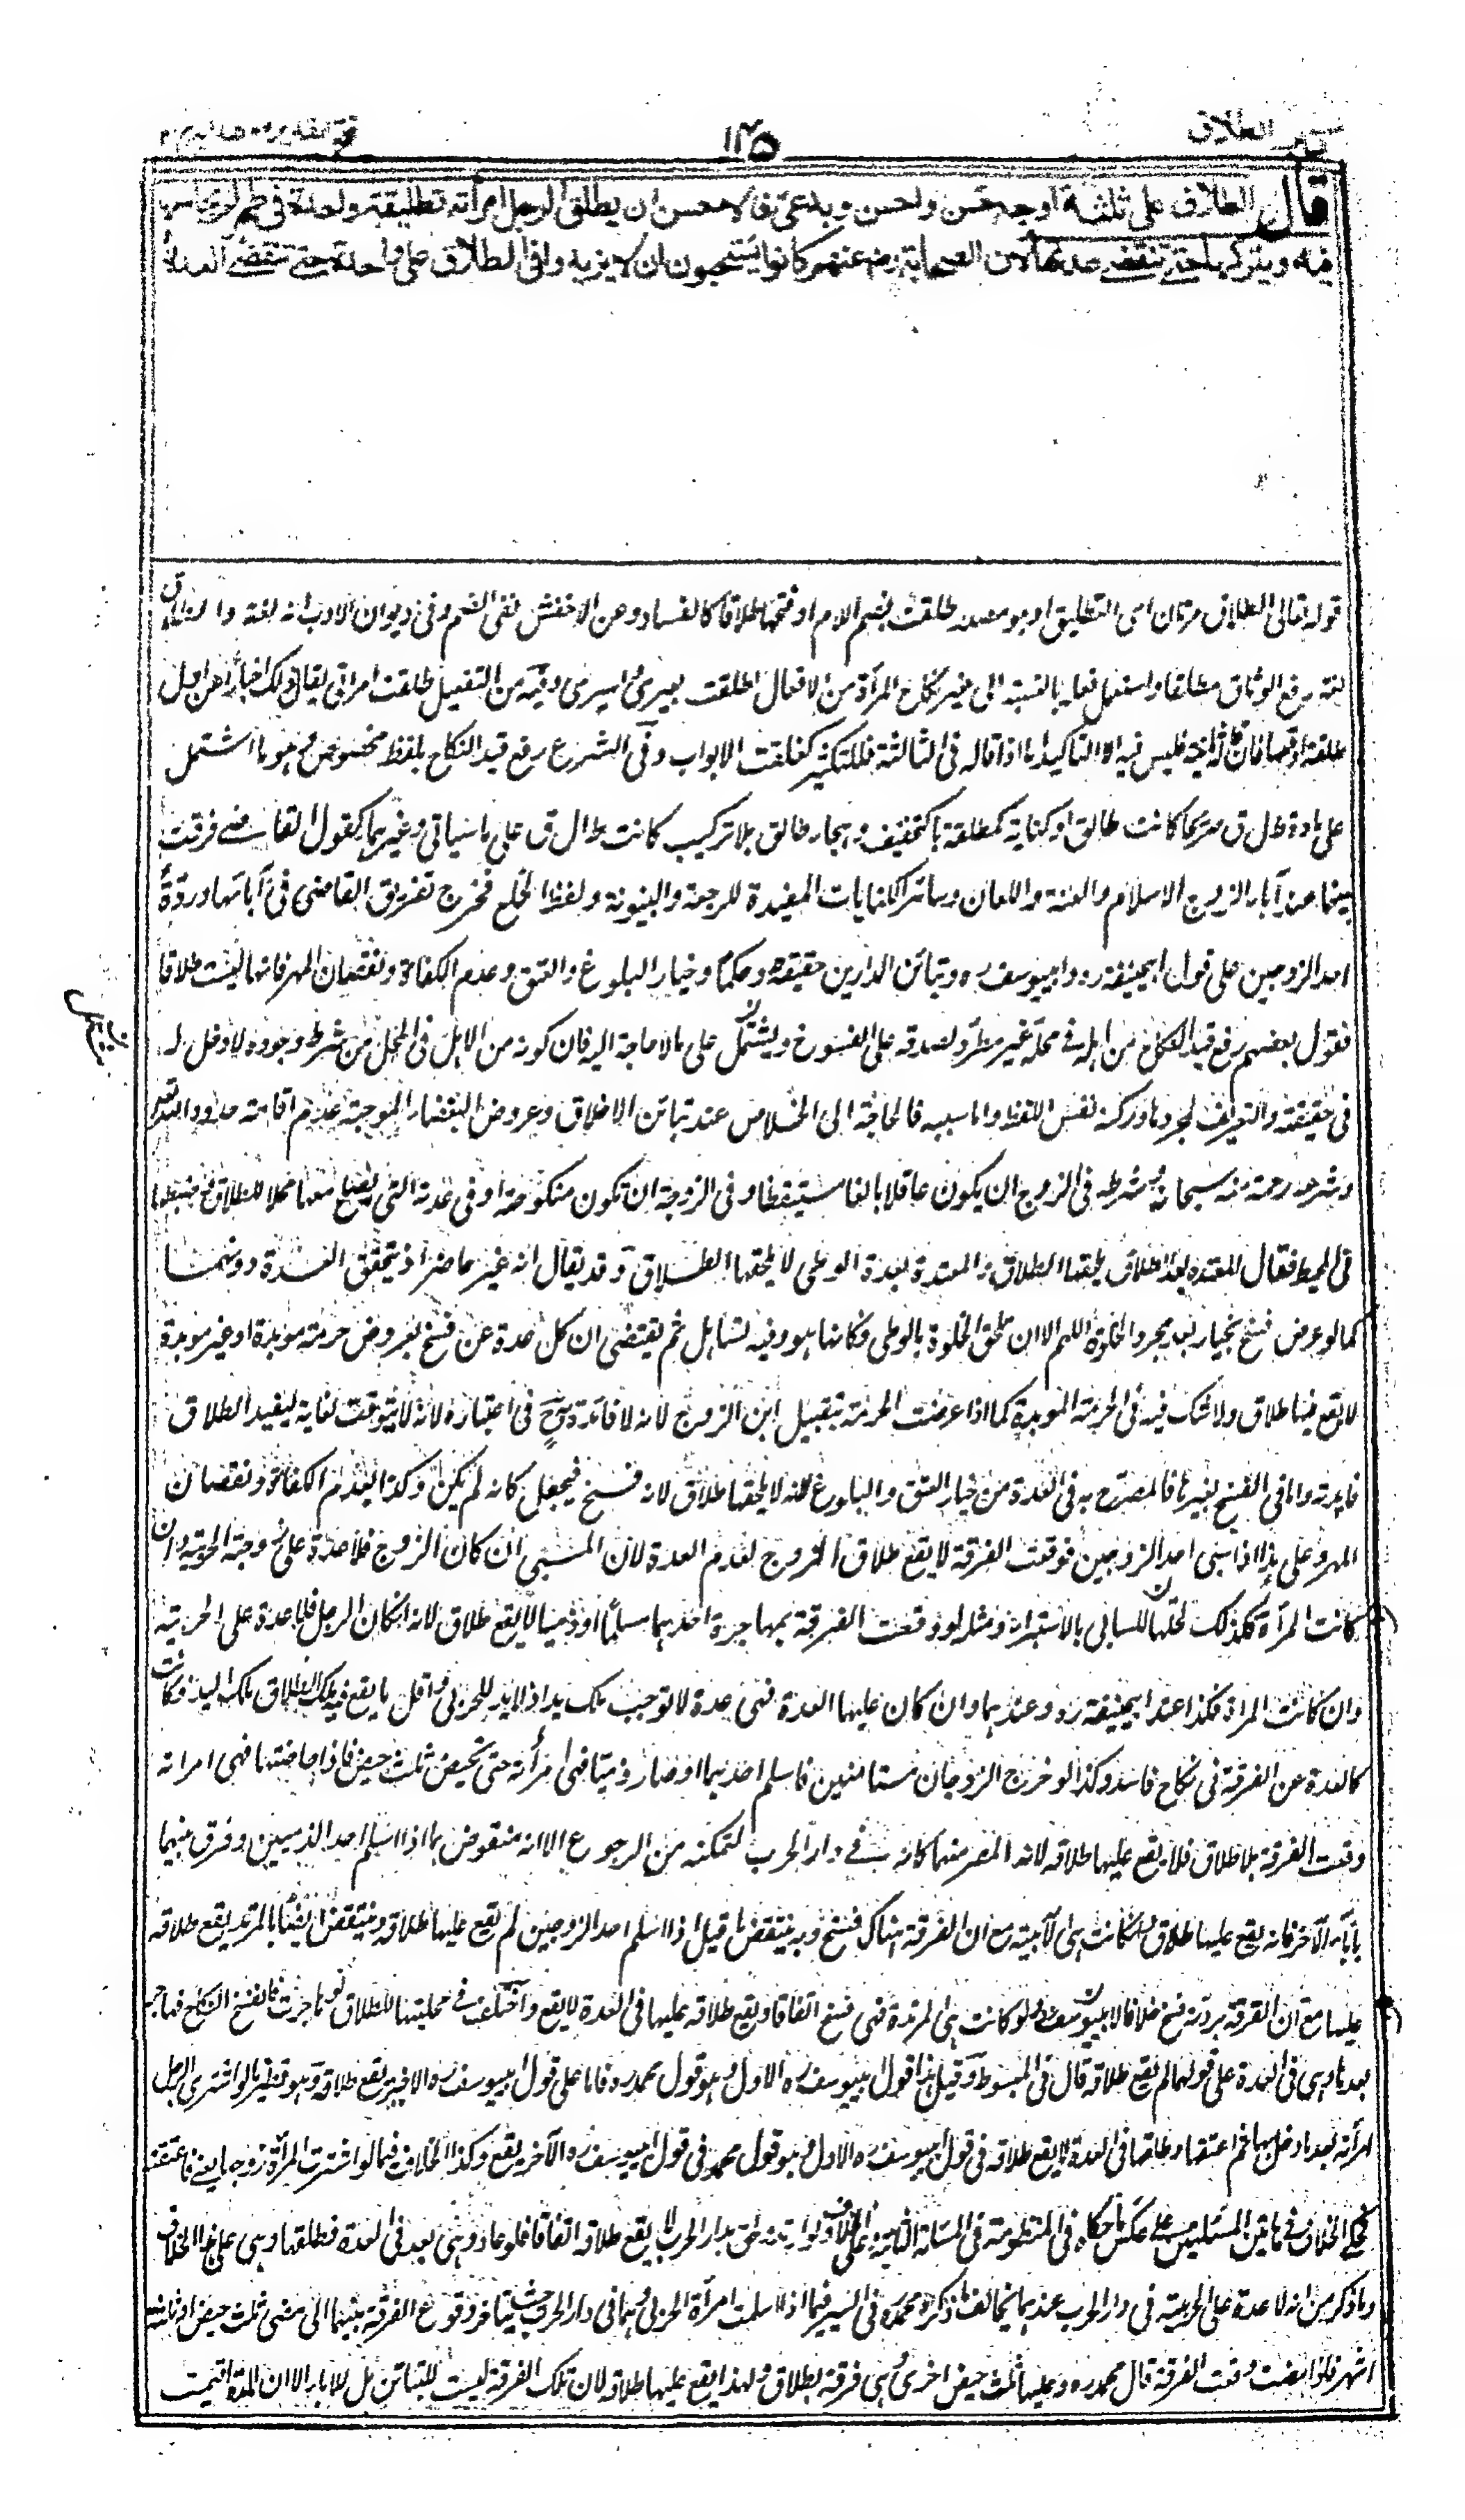 الطلاق
١٤٥
قال الطلاق على ثلثة اوجه حسن واحسن وبدعى فالاحسن ان يطلق الرجل امرأته تطليقة واحدة فى طهر لم يجامعها
فيه ويتركها حتى تنقضى عدتها لان الصحابة رض عنهم كانوا يستحبون ان لا يزيدوا فى الطلاق على واحدة حتى تنقضى العدة
قوله تعالى الطلاق مرتان اى التطليق او هو مصدر طلقت بضم اللام او فتحها طلاقا كالفساد وعن الاخفش نفى الضم وفى ديوان الادب انه لغة والطلاق
لغة رفع الوثاق مطلقا واستعمل فعله بالنسبة الى غير نكاح المرأة من الافعال اطلقت بعيرى واسيرى وفيه من التفعيل طلقت امرأتى يقال ذلك اخبارا عن اول
طلقة اوقعها فان قاله ثانية فليس فيه الا التاكيد اما اذا قاله فى الثالثة فللتكثير كغلقت الابواب وفى الشرع رفع قيد النكاح بلفظ مخصوص وهو ما اشتمل
على مادة ط ل ق صريحا كانت طالق او كناية كمطلقة بالتخفيف وهجاء طالق بلا تركيب كانت ط ال ق على ما سياتى وغيرهما كقول القاضى فرقت
بينهما عند اباء الزوج الاسلام والعنة واللعان وسائر الكنايات المفيدة للرجعة والبينونة ولفظ الخلع فخرج تفريق القاضى فى ابائها وردة
احد الزوجين على قول ابيحنيفة ره وابيوسف ره وتباين الدارين حقيقة وحكما وخيار البلوغ والعتق وعدم الكفاءة ونقصان المهر فانها ليست طلاقا
فقول بعضهم رفع قيد النكاح من اهله فى محله غير مطرد لصدقه على الفسوخ ويشتمل على ما لا حاجة اليه فان كونه من الاهل فى المحل من شرط وجوده لا دخل له
فى حقيقته والتعريف لمجردها وركنه نفس اللفظ واما سببه فالحاجة الى الخلاص عند تباين الاخلاق وعروض البغضاء الموجبة عدم اقامة حدود الله تعالى
وشرعه رحمة منه سبحانه وشرطه فى الزوج ان يكون عاقلا بالغا مستيقظا وفى الزوجة ان تكون منكوحته او فى عدته التى تصلح معها محلا للطلاق وضبطها
فى المحيط فقال المعتدة بعدة الطلاق يلحقها الطلاق والمعتدة بعدة الوطى لا يلحقها الطلاق وقد يقال انه غير حاضر اذ تتحقق العدة دونهما
كما لو عرض فسخ بخيار بعد مجرد الخلوة اللهم الا ان تلحق الخلوة بالوطى وكانها هو وفيه تساهل ثم يقتضى ان كل عدة عن فسخ بعروض حرمة مؤبدة او غير مؤبدة
لا يقع فيها طلاق ولا شك فيه فى الحرمة المؤبدة كما اذا عرضت الحرمة بتقبيل ابن الزوج لانه لا فائدة ح فى اعتباره لانه لا يتوقت لغاية ليفيد الطلاق
فايدته واما فى الفسخ بغيرها فالمصرح به فى العدة من خيار العتق والبلوغ انه لا يلحقها طلاق لانه فسخ فيجعل كانه لم يكن وكذا بعدم الكفاءة ونقصان
المهر وعلى هذا اذا سبى احد الزوجين فوقعت الفرقة لا يقع طلاق الزوج لعدم العدة لان المسبى ان كان الزوج فلا عدة على زوجته الحربية وان
كانت المرأة فكذلك لحلها للسابى بالاستبراء ومثله لو وقعت الفرقة بمهاجرة احدهما مسلما او ذميا لا يقع طلاق لانه ان كان الرجل فلا عدة على الحربية
وان كانت المرأة فكذا عند ابيحنيفة ره وعندهما وان كان عليها العدة فهى عدة لا توجب ملك يد اذ لا يد للحربى واقل ما يقع فيه الطلاق ملك اليد فكانت
كالعدة عن الفرقة فى نكاح فاسد وكذا لو خرج الزوجان مستامنين فاسلم احدهما او صار ذميا فهى امرأته حتى تحيض ثلث حيض فاذا حاضتها فهى امراته
وقعت الفرقة بلا طلاق فلا يقع عليها طلاقه لانه المصر منهما كانه فى دار الحرب لتمكنه من الرجوع الا انه منقوض بما اذا اسلم احد الذميين وفرق بينهما
باباء الآخر فانه يقع عليها طلاق وان كانت هى الآبية مع ان الفرقة هناك فسخ وبه ينتقض ما قيل اذا اسلم احد الزوجين لم يقع عليها طلاقه وينتقض ايضا بالمرتد يقع طلاقه
عليها مع ان الفرقة بردته فسخ خلافا لابيوسف ولو كانت هى المرتدة فهى فسخ اتفاقا ويقع طلاقه عليها فى العدة واختلف فى محليتها للطلاق لو هاجرت فانفسخ النكاح فهاجر
بعدها وهى فى العدة على قولهما لم يقع طلاقه قال فى المبسوط وقيل هذا قول ابيوسف ره الاول وهو قول محمد ره فاما على قول ابيوسف ره الاخير يقع طلاقه وهو نظير ما لو اشترى الرجل
امرأته بعد ما دخل بها ثم اعتقها وطلقها فى العدة لا يقع طلاقه فى قول ابيوسف ره الاول وهو قول محمد وفى قول ابيوسف ره الآخر يقع وكذا الخلاف فيما لو اشترت المرأة زوجها يعنى فاعتقته
فحكى الخلاف فى هاتين المسئلتين على عكس ما حكاه فى المنظومة فى المسئلة الثانية ولو ارتد ولحق بدار الحرب لا يقع طلاقه اتفاقا فلو عاد وهى بعد فى العدة فطلقها وهى على هذا الخلاف
وما ذكر من انه لا عدة على الحربية فى دار الحرب عندهما يخالف ما ذكره محمد ره فى السير فيما اذا اسلمت امرأة الحربى وهما فى دار الحرب حيث يتاخر وقوع الفرقة بينهما الى مضى ثلث حيض او ثلثة
اشهر فاذا مضت وقعت الفرقة قال محمد ره وعليها ثلث حيض اخرى وهى فرقة بطلاق ولهذا يقع عليها طلاقه لان تلك الفرقة ليست للتباين بل للاباء الا ان المدة اقيمت